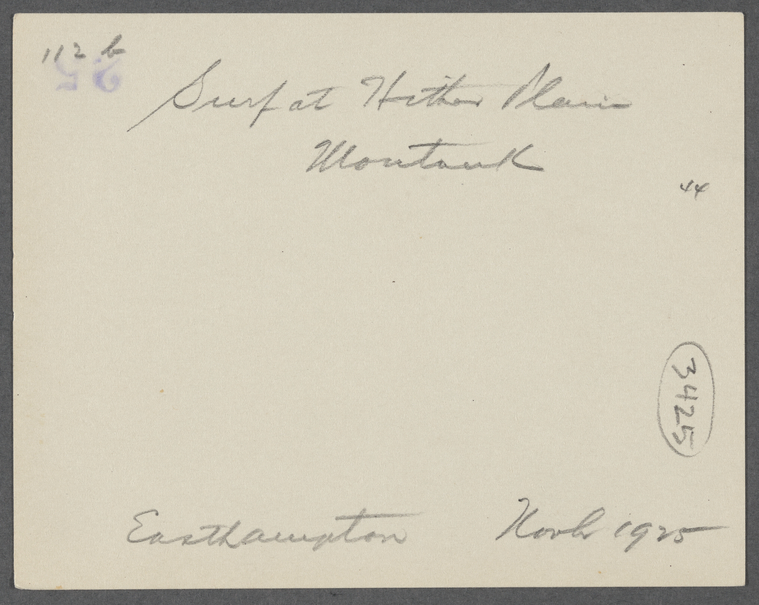 112 b
25
Surf at Hither Plain
Montauk
44
3425
Easthampton Novbr 1925